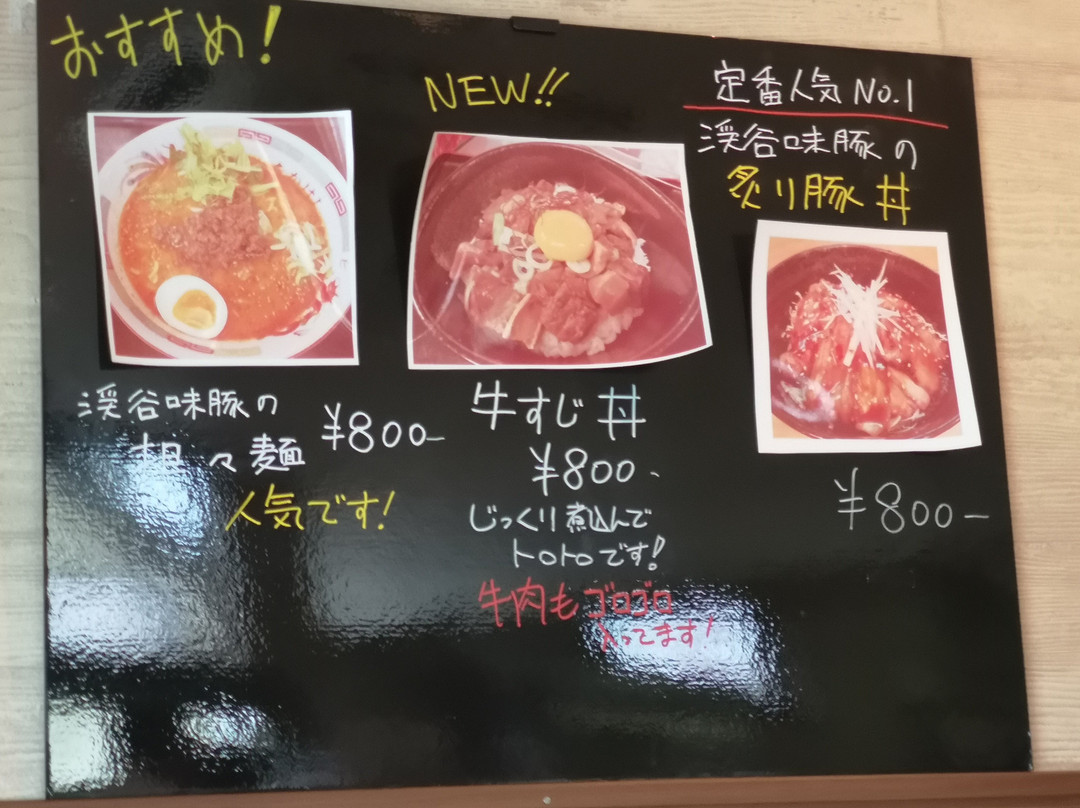 おすすめ!
渓谷味豚の
担々麺
¥800-
人気です!
NEW!!
牛すじ丼
¥800-
じっくり煮込んで
トロトロです!
牛肉もゴロゴロ
入ってます!
定番人気 No.1
渓谷味豚の
炙り豚丼
¥800-